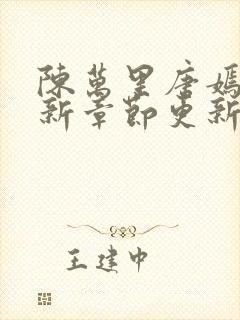 陳萬里唐嫣
新章節更新
王建中